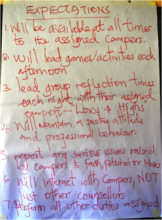 EXPECTATIONS
1. Will be available at all times
to the assigned campers.
2. Will lead games/activities each
afternoon
3. lead group reflection times
each night with their assigned
campers - Lows & Highs
4. Will maintain a positive attitude
and professional behaviour.
5. report any serious issues raised
by campers to
Will interact with Campers, NOT
just other counsellors
7. Perform all other duties assigned